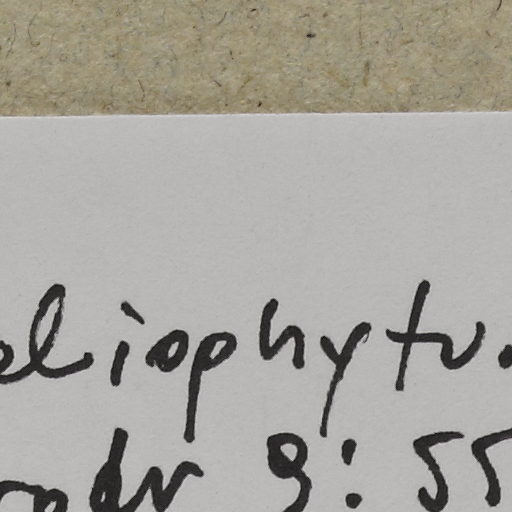 eliophytu.
ndr 9: 55